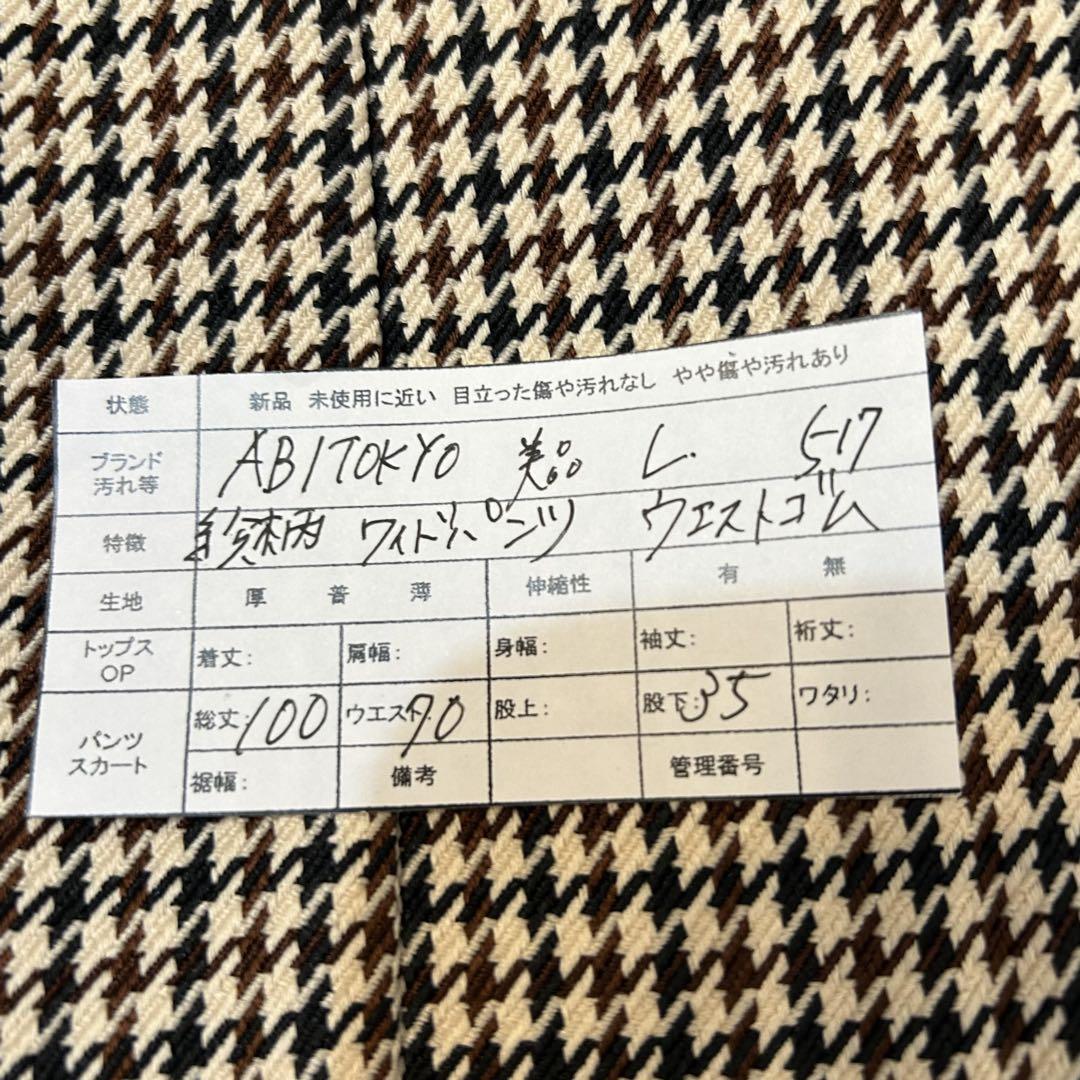 状態 新品 未使用に近い 目立った傷や汚れなし やや傷や汚れあり
ブランド
汚れ等
ABITOKYO 美品 L. 5-17
特徴 柄 ワイドパンツ ウエストゴム
生地 厚 普 薄 伸縮性 有 無
トップス
OP
着丈: 肩幅: 身幅: 袖丈: 裄丈:
パンツ
スカート
総丈: 100 ウエスト: 70 股上: 股下: 35 ワタリ:
裾幅: 備考 管理番号